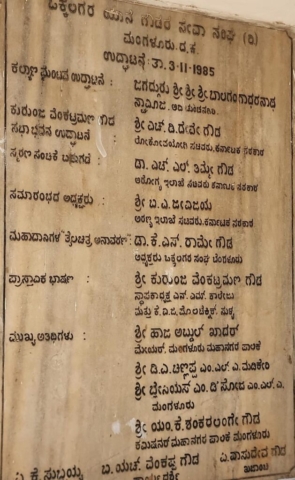 ಒಕ್ಕಲಿಗರ ಯಾನೆ ಗೌಡರ ಸೇವಾ ಸಂಘ (ರಿ)
ಮಂಗಳೂರು. ದ.ಕ.
ಉದ್ಘಾಟನೆ: ತಾ. 3-11-1985
ಕಲ್ಯಾಣ ಮಂಟಪ ಉದ್ಘಾಟನೆ : ಜಗದ್ಗುರು ಶ್ರೀ ಶ್ರೀ ಶ್ರೀ ಬಾಲಗಂಗಾಧರನಾಥ
ಸ್ವಾಮೀಜಿ.
ಕುರುಂಜಿ ವೆಂಕಟ್ರಮಣ ಗೌಡ ಸಭಾಭವನ ಉದ್ಘಾಟನೆ : ಶ್ರೀ ಎಚ್.ಡಿ.ದೇವೇ ಗೌಡ
ಲೋಕೋಪಯೋಗಿ ಸಚಿವರು, ಕರ್ನಾಟಕ ಸರಕಾರ
ಸ್ಮರಣ ಸಂಚಿಕೆ ಬಿಡುಗಡೆ : ಡಾ. ಎಚ್. ಎಲ್. ತಿಮ್ಮೇ ಗೌಡ
ಆರೋಗ್ಯ ಇಲಾಖೆ ಸಚಿವರು ಕರ್ನಾಟಕ ಸರಕಾರ
ಸಮಾರಂಭದ ಅಧ್ಯಕ್ಷರು : ಶ್ರೀ ಬಿ.ಎ.ಜೀವಿಜಯ
ಅರಣ್ಯ ಇಲಾಖೆ ಸಚಿವರು, ಕರ್ನಾಟಕ ಸರಕಾರ
ಮಹಾದಾನಿಗಳ "ತೈಲಚಿತ್ರ ಅನಾವರಣ" : ಡಾ. ಕೆ.ಎಸ್. ರಾಮೇ ಗೌಡ
ಅಧ್ಯಕ್ಷರು ಒಕ್ಕಲಿಗರ ಸಂಘ ಬೆಂಗಳೂರು
ಪ್ರಾಸ್ತಾವಿಕ ಭಾಷಣ : ಶ್ರೀ ಕುರುಂಜಿ ವೆಂಕಟ್ರಮಣ ಗೌಡ
ಸ್ಥಾಪಕಾಧ್ಯಕ್ಷ ಎನ್. ಎಮ್. ಕಾಲೇಜು
ಮತ್ತು ಕೆ.ವಿ.ಜಿ. ಪೊಲಿಟೆಕ್ನಿಕ್. ಸುಳ್ಯ
ಮುಖ್ಯ ಅತಿಥಿಗಳು : ಶ್ರೀ ಹಾಜಿ ಅಬ್ದುಲ್ ಖಾದರ್
ಮೇಯರ್, ಮಂಗಳೂರು ಮಹಾನಗರ ಪಾಲಿಕೆ
ಶ್ರೀ ಡಿ.ಎ.ಚಿಣ್ಣಪ್ಪ ಎಂ.ಎಲ್.ಎ. ಮಡಿಕೇರಿ
ಶ್ರೀ ಬ್ಲೇಸಿಯಸ್ ಎಂ. ಡಿ'ಸೋಜ ಎಂ.ಎಲ್.ಎ.
ಮಂಗಳೂರು
ಶ್ರೀ ಯಂ.ಕೆ.ಶಂಕರಲಿಂಗೇ ಗೌಡ
ಕಮಿಷನರ್ ಮಹಾನಗರ ಪಾಲಿಕೆ ಮಂಗಳೂರು
ಕೆ. ಸುಬ್ಬಯ್ಯ ಬಿ. ಯಚ್. ವೆಂಕಪ್ಪ ಗೌಡ ಪಿ. ವಾಸುದೇವ ಗೌಡ